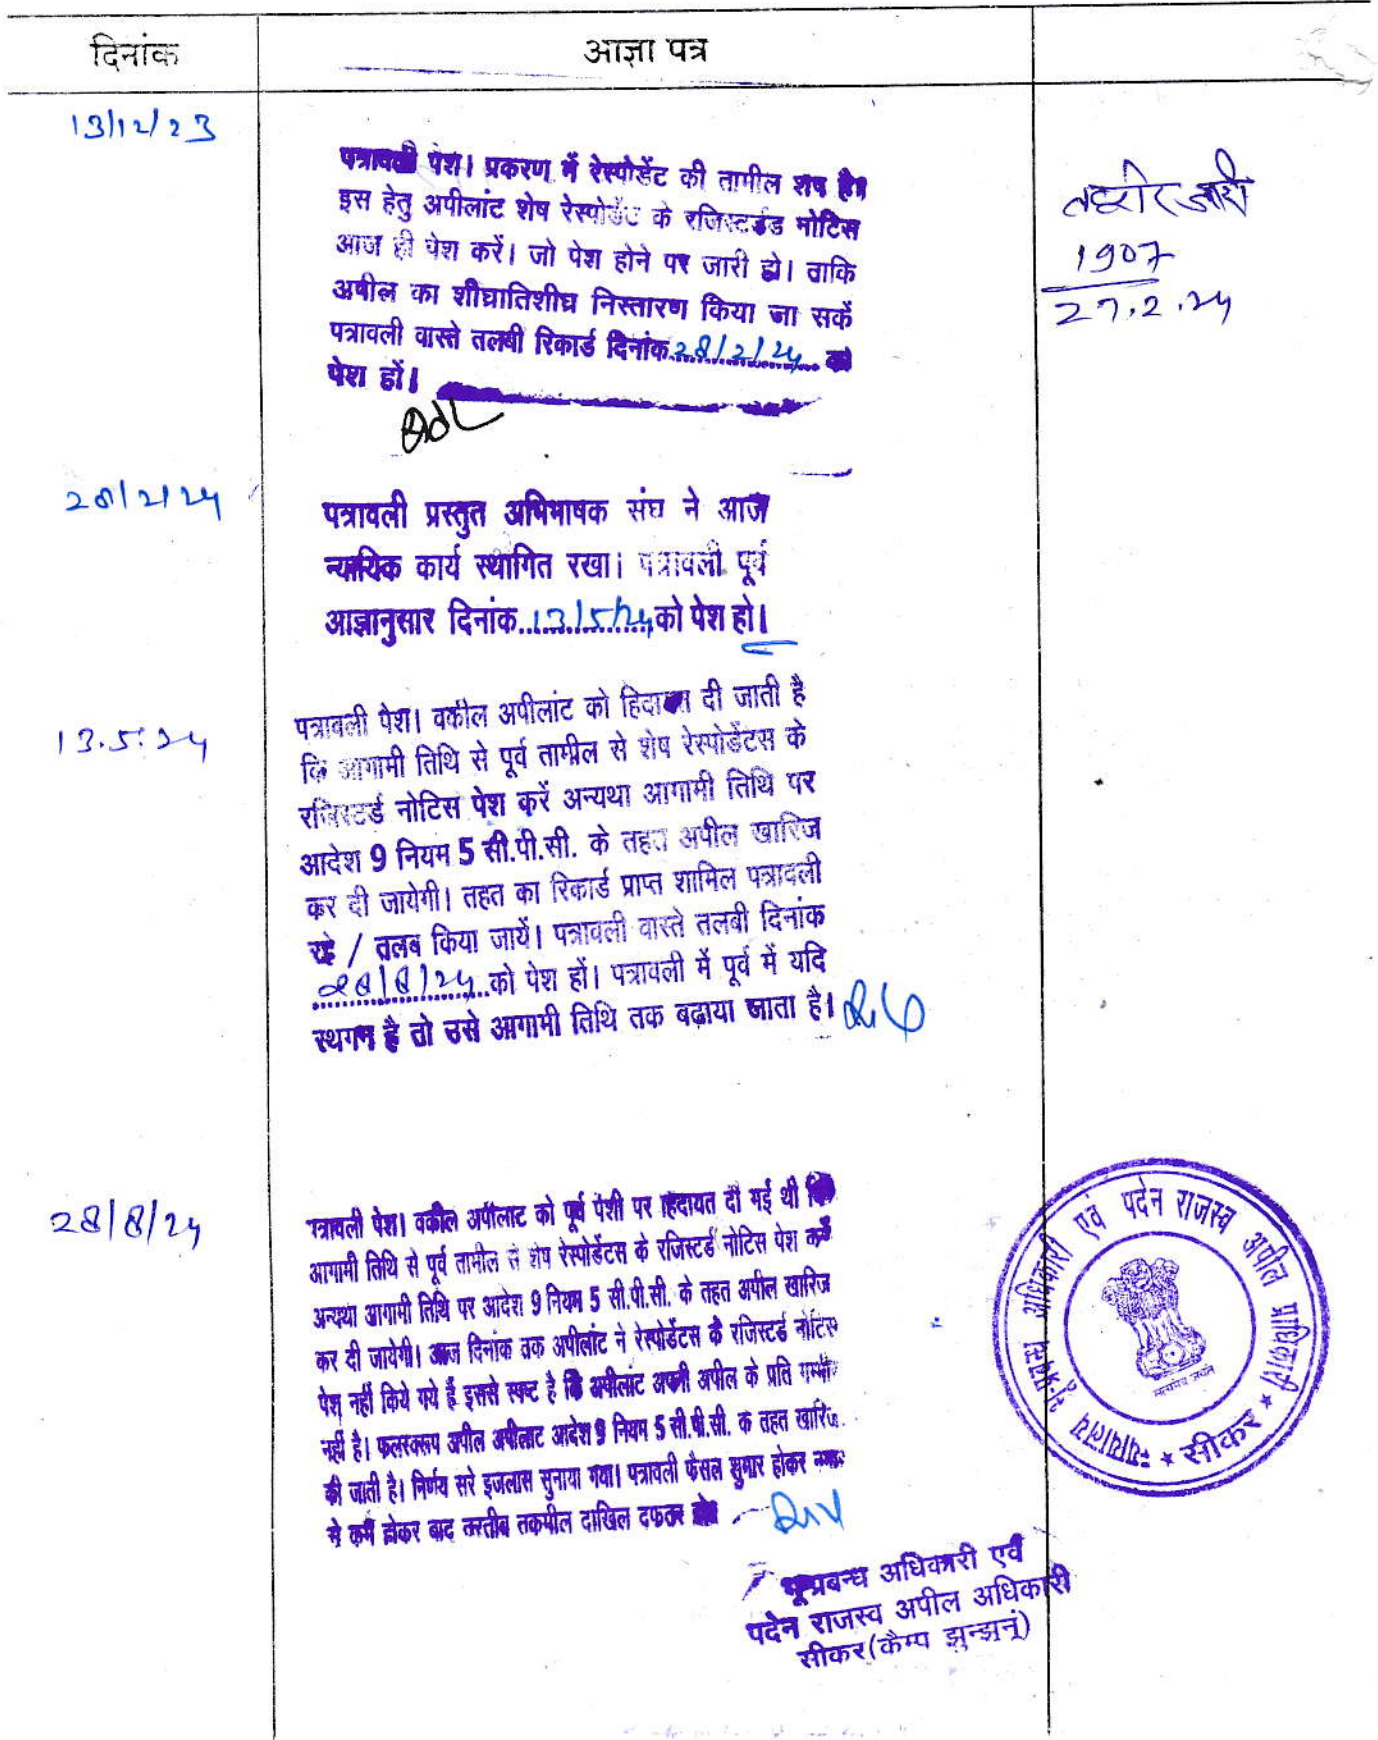 दिनांक
आज्ञा पत्र
13/12/23
पत्रावली पेश। प्रकरण में रेस्पोडेंट की तामील शेष है।
इस हेतु अपीलांट शेष रेस्पोडेंट के रजिस्टर्डड नोटिस
आज ही पेश करें। जो पेश होने पर जारी हो। ताकि
अपील का शीघ्रातिशीघ्र निस्तारण किया जा सकें
पत्रावली वास्ते तलबी रिकार्ड दिनांक 28/2/24 को
पेश हों।
जारी
1907
27.2.24
28/2/24
पत्रावली प्रस्तुत अभिभाषक संघ ने आज
न्यायिक कार्य स्थागित रखा। पत्रावली पूर्व
आज्ञानुसार दिनांक 13/5/24 को पेश हो।
13.5.24
पत्राबली पेश। वकील अपीलांट को हिदायत दी जाती है
कि आगामी तिथि से पूर्व तामील से शेष रेस्पोडेंटस के
रजिस्टर्ड नोटिस पेश करें अन्यथा आगामी तिथि पर
आदेश 9 नियम 5 सी.पी.सी. के तहत अपील खारिज
कर दी जायेगी। तहत का रिकार्ड प्राप्त शामिल पत्रावली
रहे / तलब किया जायें। पत्रावली वास्ते तलबी दिनांक
28/8/24 को पेश हों। पत्रावली में पूर्व में यदि
स्थगन है तो उसे आगामी तिथि तक बढ़ाया जाता है।
28/8/24
पत्रावली पेश। वकील अपीलाट को पूर्व पेशी पर हिदायत दी गई थी कि
आगामी तिथि से पूर्व तामील से शेष रेस्पोडेंटस के रजिस्टर्ड नोटिस पेश करें
अन्यथा आगामी तिथि पर आदेश 9 नियम 5 सी.पी.सी. के तहत अपील खारिज
कर दी जायेगी। आज दिनांक तक अपीलांट ने रेस्पोडेंटस के रजिस्टर्ड नोटिस
पेश नहीं किये गये हैं इससे स्पष्ट है कि अपीलांट अपनी अपील के प्रति गम्भीर
नहीं है। फलस्वरूप अपील अपीलाट आदेश 9 नियम 5 सी.पी.सी. के तहत खारिज
की जाती है। निर्णय सरे इजलास सुनाया गया। पत्रावली फैसल शुमार होकर नम्बर
से कम होकर बाद तरतीब तकमील दाखिल दफतर हो।
न्यायालय भू-प्रबन्ध अधिकारी एवं पदेन राजस्व अपील प्राधिकारी
* सीकर *
भूप्रबन्ध अधिकारी एवं
पदेन राजस्व अपील अधिकारी
सीकर(कैम्प झुन्झुनूं)